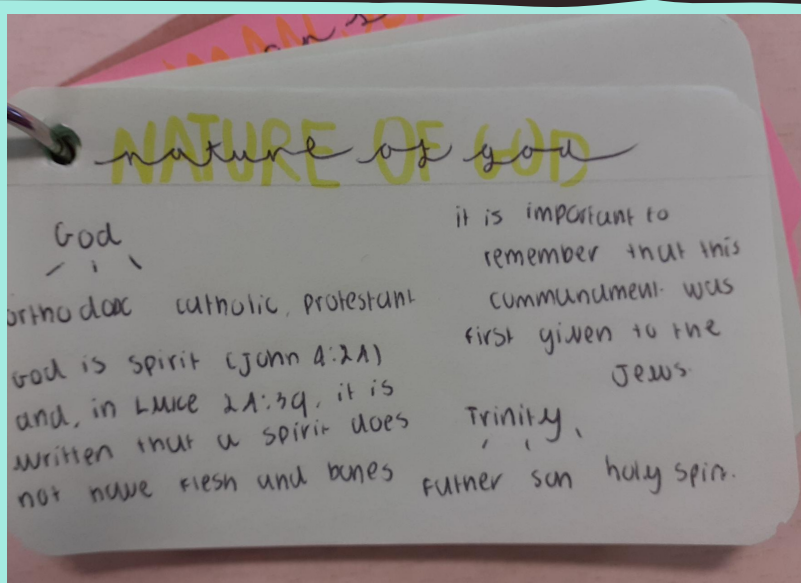 NATURE OF GOD
nature of god
God
orthodox catholic, protestant
God is spirit (John 4:24)
and, in Luke 24:39, it is
written that a spirit does
not have flesh and bones
it is important to
remember that this
commandment was
first given to the
Jews.
Trinity
Father son holy spirit.